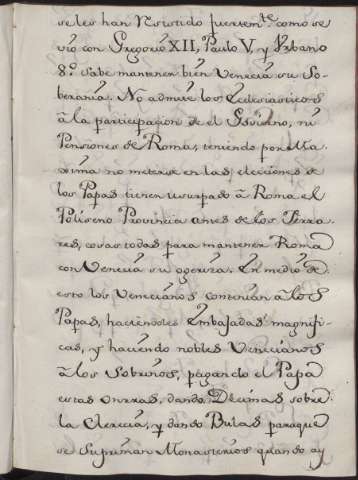 se les han Resistido fuertem.te como se
vió con Gregorio XII, Paulo V, y Urbano
8.º sabe mantener bien Venecia su So-
berania. No admite los Eclesiasticos
â la participacion de el Govierno, ni
Pensiones de Roma, teniendo por Ma
xima no meterse en las elecciones de
los Papas tienen usurpado â Roma el
Poliseno Provincia antes de los Ferra
res, cosas todas para mantener Roma
con Venecia su ogeriza. En medio de
esto los Venecianos contentan â los
Papas, haciendoles Embajadas magnifi-
cas, y haciendo nobles Venecianos
â los Sobrinos, pagando el Papa
estas onrras, dando Decimas sobre
la Clerecia, y dando Bulas para que
se Supriman Monasterios quando ay